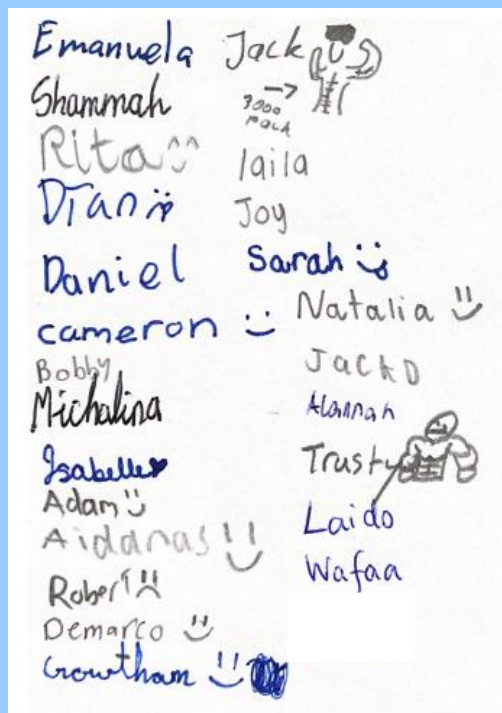 Emanuela
Shammah
Rita
Dian
Daniel
cameron
Bobby
Michalina
Isabelle
Adam
Aidanas
Robert
Demarco
Gowtham
Jack
→
3000
pack
laila
Joy
Sarah
Natalia
Jack D
Alannah
Trusty
Laido
Wafaa